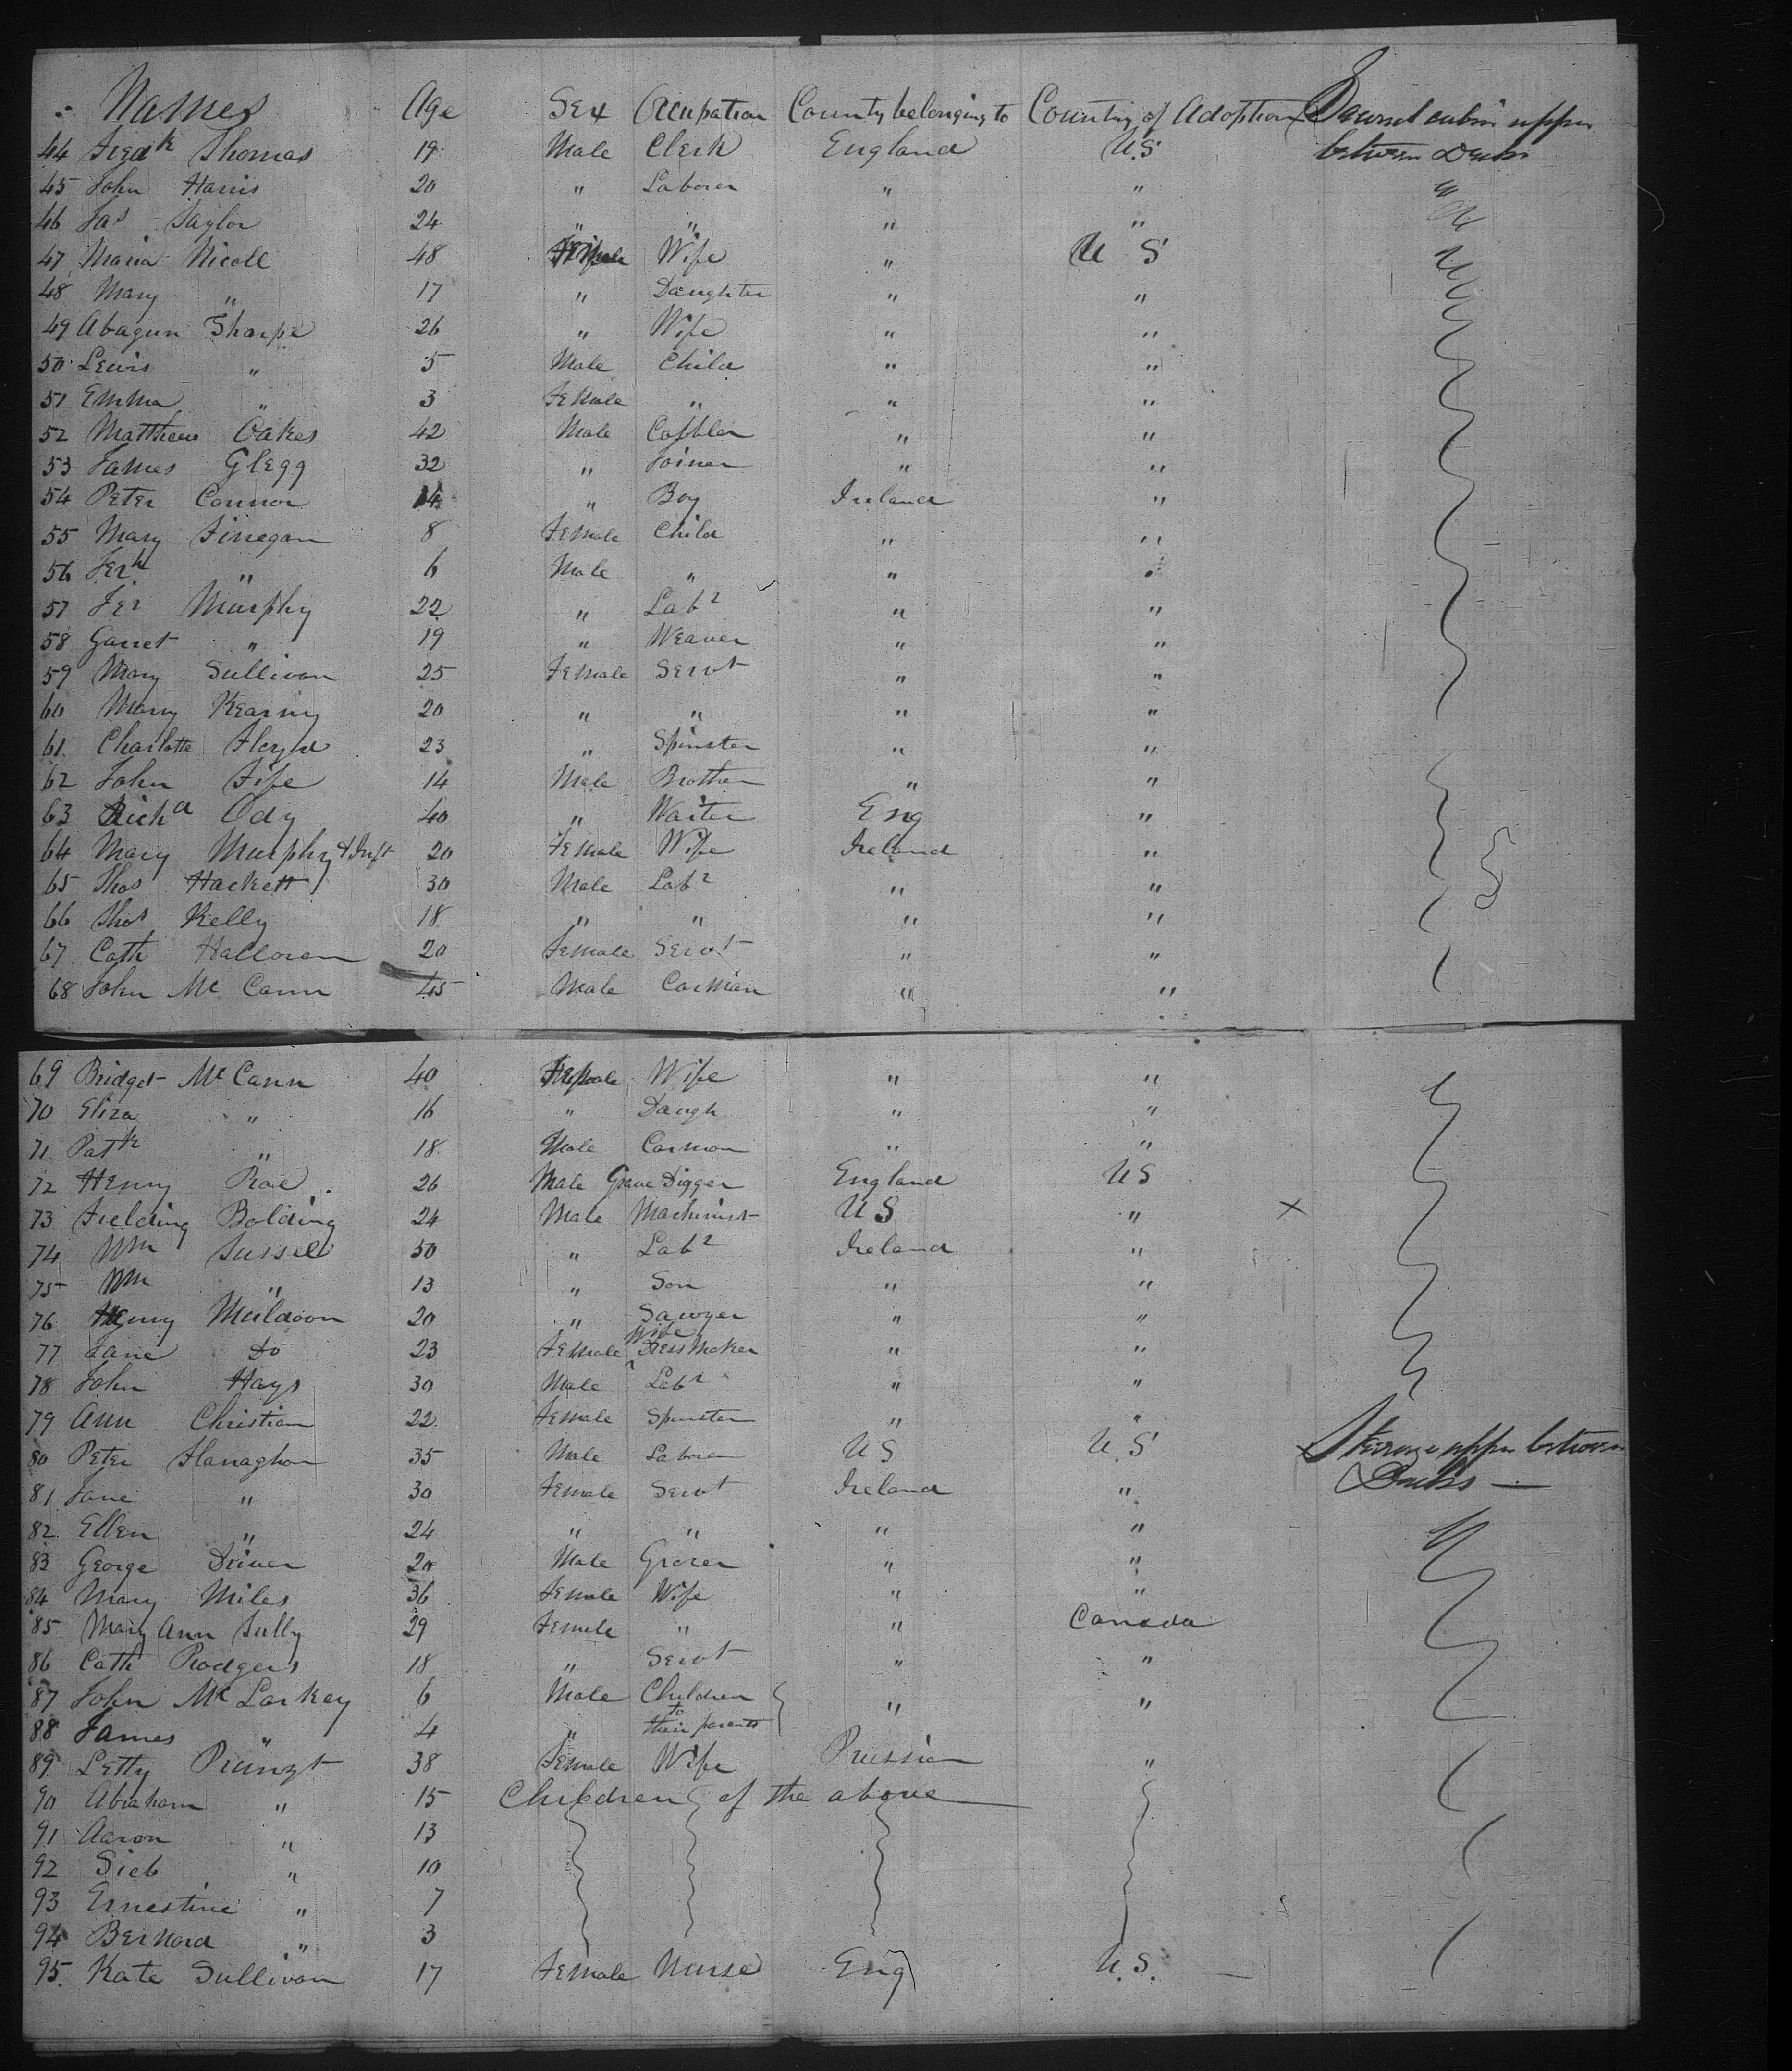 Names Age Sex Occupation County belonging to Country of Adoption cabin upper
44 Fredk Thomas 19 Male Clerk England U.S between Decks
45 John Harris 20 " Laborer " "
46 Jas Taylor 24 " " " "
47 Maria Nicoll 48 Female Wife " U S
48 Mary " 17 " Daughter " "
49 Abagun Sharpe 26 " Wife " "
50 Lewis " 5 Male Child " "
51 Emma " 3 Female " " "
52 Matthew Oakes 42 Male Cobbler " "
53 James Glegg 32 " Joiner " "
54 Peter Connor 14 " Boy Ireland "
55 Mary Finegan 8 Female Child " "
56 Jerh " 6 Male " " "
57 Jer Murphy 22 " Labr " "
58 Garret " 19 " Weaver " "
59 Mary Sullivan 25 Female Servt " "
60 Mary Kearny 20 " " " "
61 Charlotte Floyd 23 " Spinster " "
62 John Fife 14 Male Brother " "
63 Richd Ody 40 " Waiter Eng "
64 Mary Murphy & Inft 20 Female Wife Ireland "
65 Thos Hackett 30 Male Labr " "
66 Thos Kelly 18 " " " "
67 Cath Halloran 20 Female Servt " "
68 John Mc Cann 45 Male Carman " "
69 Bridget Mc Cann 40 Female Wife " "
70 Eliza " 16 " Daugh " "
71 Patk " 18 Male Carman " "
72 Henry Roe 26 Male Grave Digger England US
73 Fielding Bolding 24 Male Machinist U S " x
74 Wm Sussel 50 " Labr Ireland "
75 Wm " 13 " Son " "
76 Henry Muldoon 20 " Sawyer " "
77 Jane do 23 Female Wife Dress Maker " "
78 John Hays 30 Male Labr " "
79 Ann Christian 22 Female Spinster " "
80 Peter Flanaghan 35 Male Laborer US U.S Steerage upper between
81 Jane " 30 Female Servt Ireland " Decks —
82 Ellen " 24 " " " "
83 George Driver 20 Male Grocer " "
84 Mary Miles 36 Female Wife " "
85 Mary Ann Sully 29 Female " " Canada
86 Cath Rodgers 18 " Servt " "
87 John Mc Larkey 6 Male Children " "
88 James " 4 " to their parents
89 Letty Prunzt 38 Female Wife Prussian "
90 Abraham " 15 Children of the above
91 Aaron " 13
92 Sieb " 10
93 Ernestine " 7
94 Bernard " 3
95. Kate Sullivan 17 Female Nurse Eng U.S. —